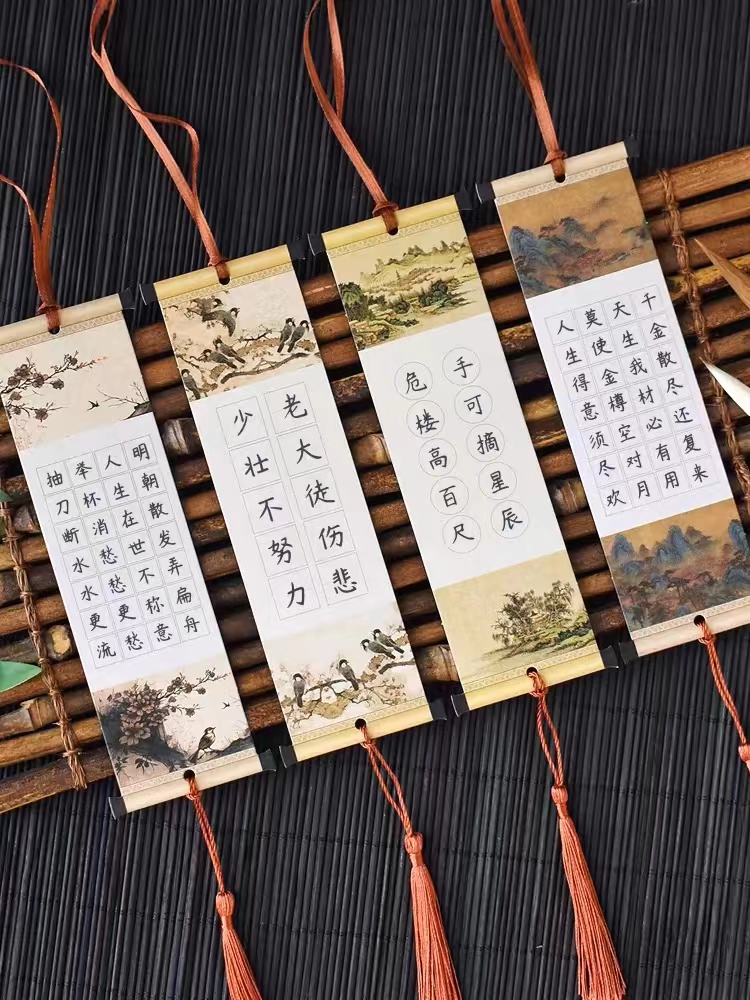 抽刀断水水更流
举杯消愁愁更愁
人生在世不称意
明朝散发弄扁舟
少壮不努力
老大徒伤悲
危楼高百尺
手可摘星辰
人生得意须尽欢
莫使金樽空对月
天生我材必有用
千金散尽还复来